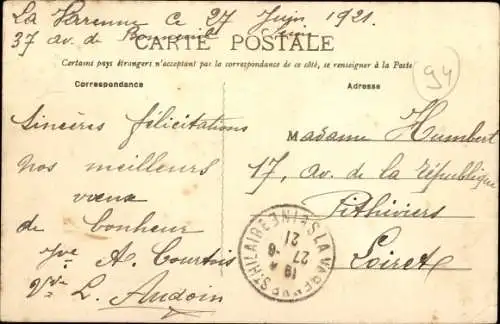 La Varenne ce 27 Juin 1921.
37 av. de Bonneuil Seine
CARTE POSTALE
Certains pays étrangers n'acceptent pas la correspondance de ce côté, se renseigner à la Poste
94
Correspondance
Adresse
Sincères félicitations
nos meilleurs
vœux
de bonheur
A. Courtois
L. Audoin
Madame Humbert
17, av. de la République
Pithiviers
Loiret
LA VARENNE-ST-HILAIRE SEINE
27 -6
21